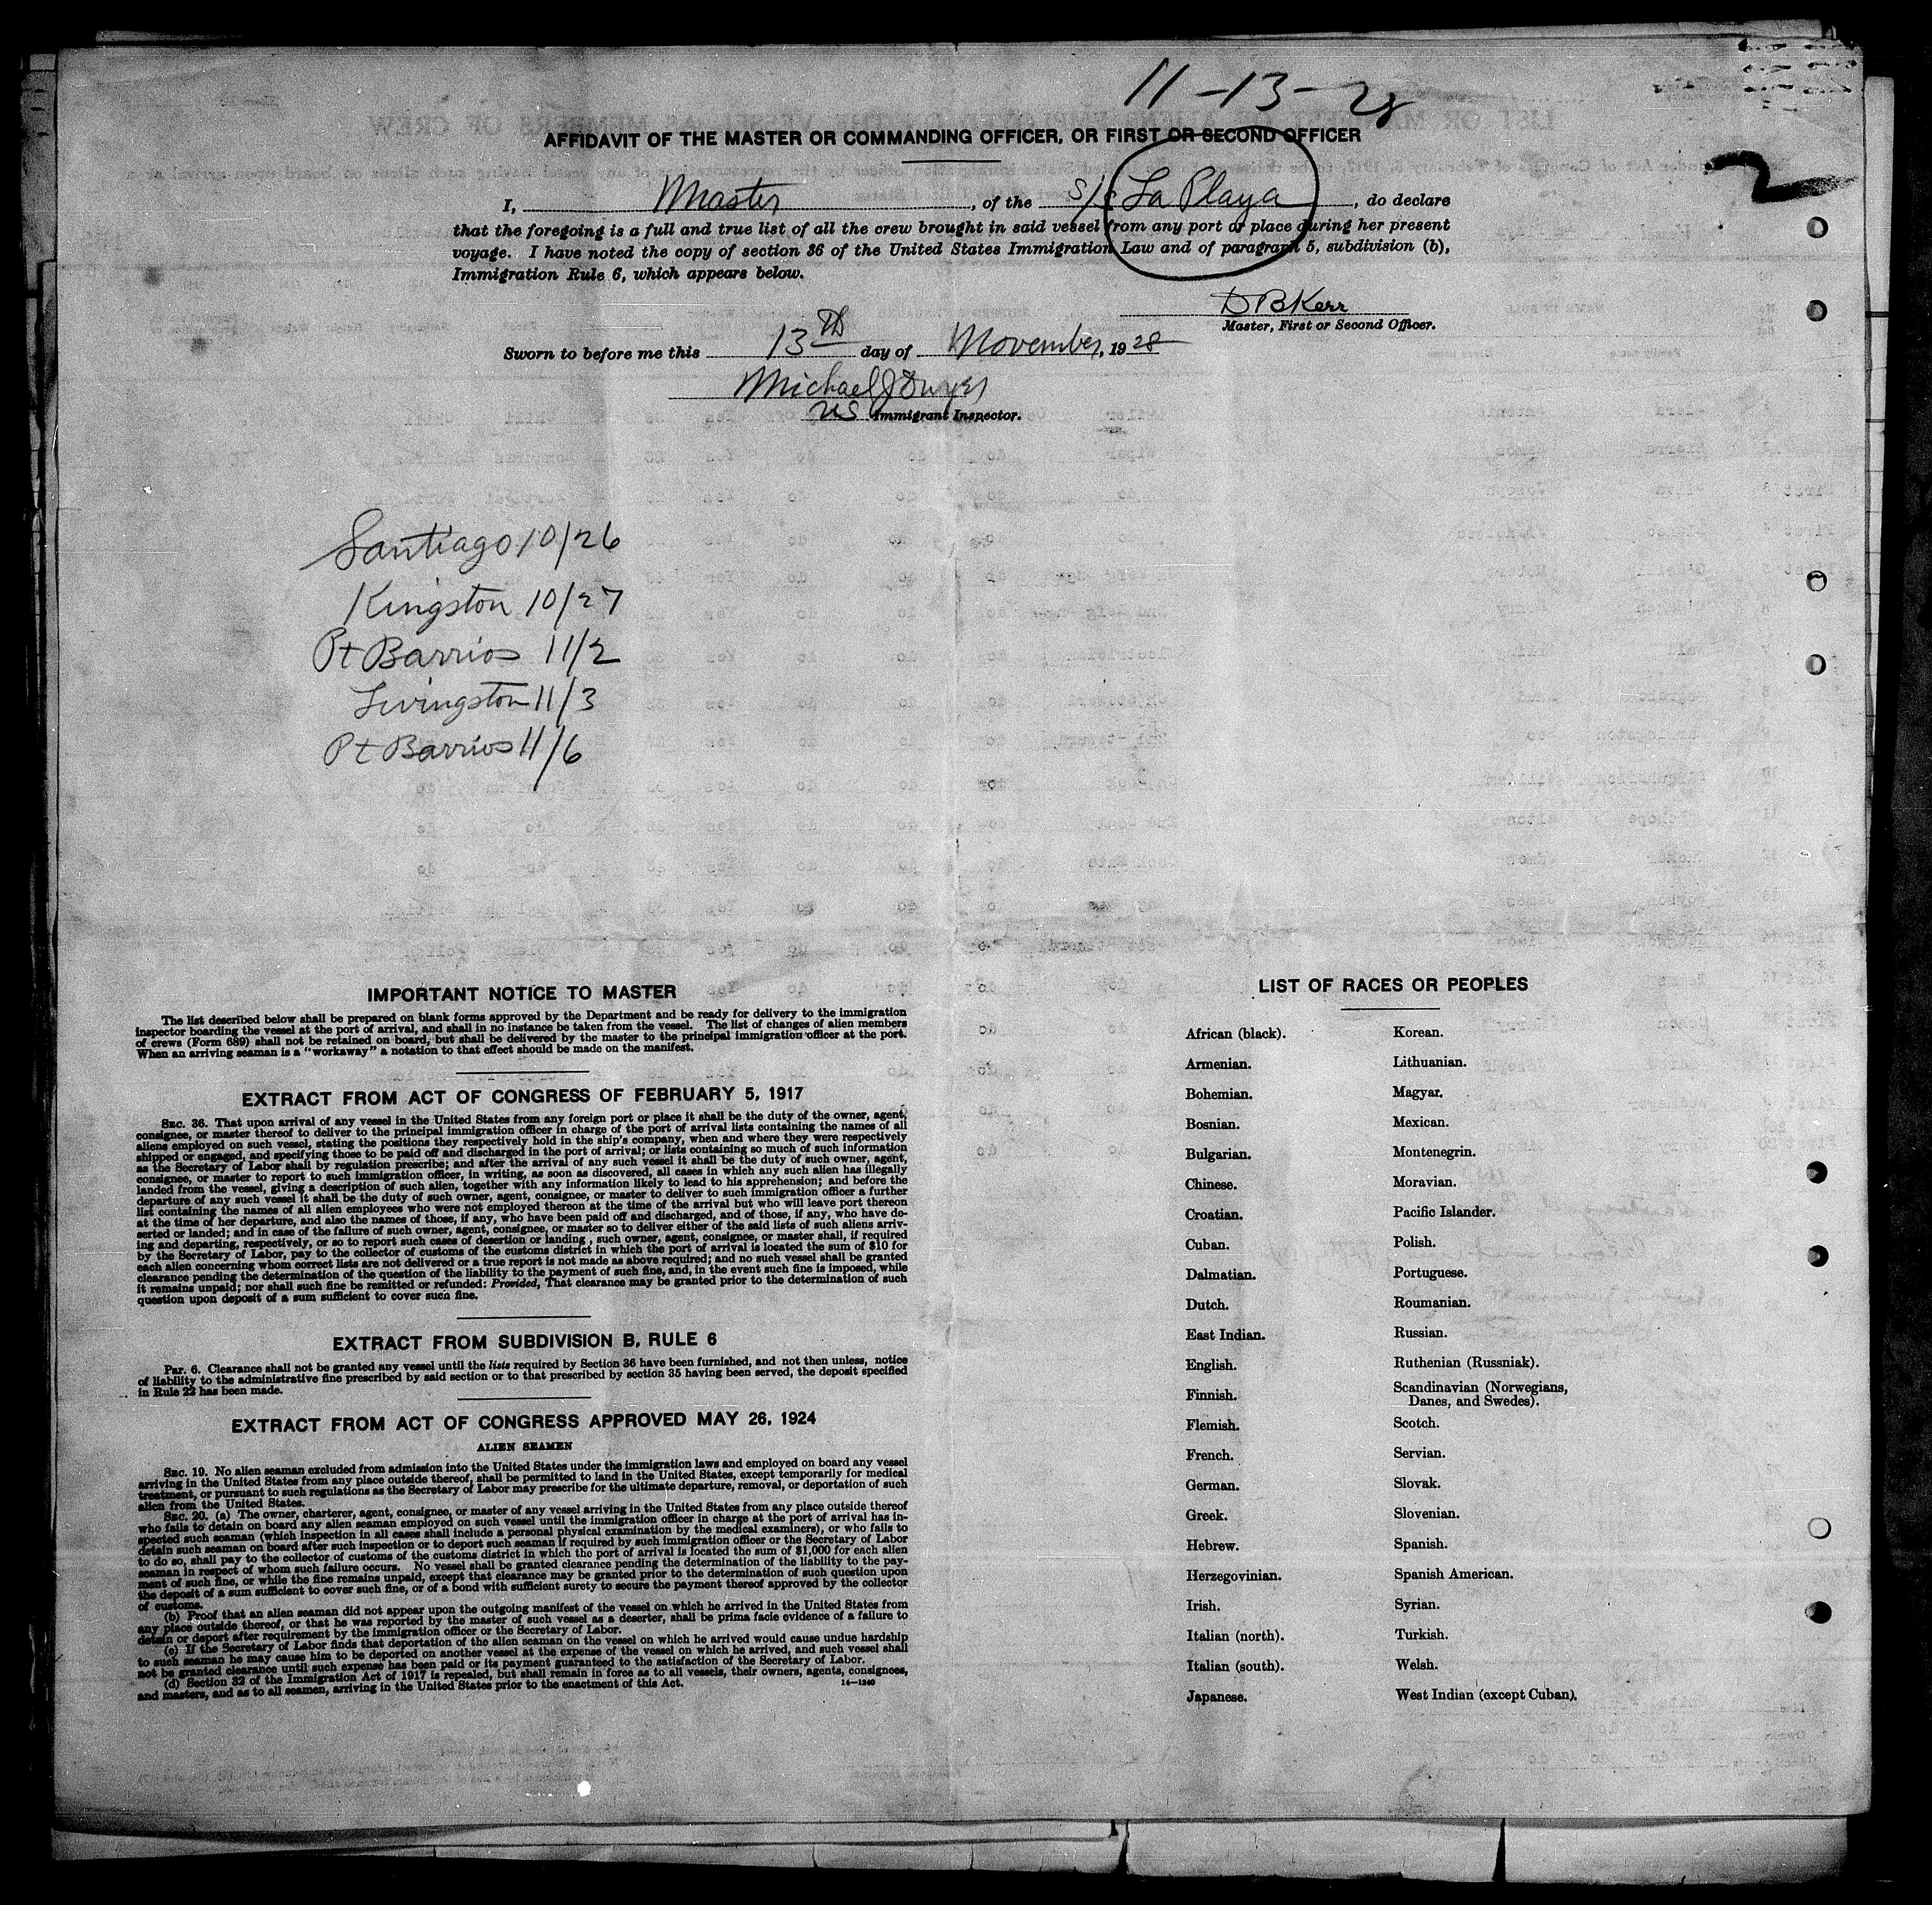 11-13-28
AFFIDAVIT OF THE MASTER OR COMMANDING OFFICER, OR FIRST OR SECOND OFFICER
2
I, Master, of the S/S La Playa, do declare
that the foregoing is a full and true list of all the crew brought in said vessel from any port or place during her present
voyage. I have noted the copy of section 36 of the United States Immigration Law and of paragraph 5, subdivision (b),
Immigration Rule 6, which appears below.
D B Kerr
Master, First or Second Officer.
Sworn to before me this 13th day of November, 1928
Michael J Dwyer
US Immigrant Inspector.
Santiago 10/26
Kingston 10/27
Pt Barrios 11/2
Livingston 11/3
Pt Barrios 11/6
IMPORTANT NOTICE TO MASTER
The list described below shall be prepared on blank forms approved by the Department and be ready for delivery to the immigration
inspector boarding the vessel at the port of arrival, and shall in no instance be taken from the vessel. The list of changes of alien members
of crews (Form 689) shall not be retained on board, but shall be delivered by the master to the principal immigration officer at the port.
When an arriving seaman is a "workaway" a notation to that effect should be made on the manifest.
EXTRACT FROM ACT OF CONGRESS OF FEBRUARY 5, 1917
SEC. 36. That upon arrival of any vessel in the United States from any foreign port or place it shall be the duty of the owner, agent,
consignee, or master thereof to deliver to the principal immigration officer in charge of the port of arrival lists containing the names of all
aliens employed on such vessel, stating the positions they respectively hold in the ship's company, when and where they were respectively
shipped or engaged, and specifying those to be paid off and discharged in the port of arrival; or lists containing so much of such information
as the Secretary of Labor shall by regulation prescribe; and after the arrival of any such vessel it shall be the duty of such owner, agent,
consignee, or master to report to such immigration officer, in writing, as soon as discovered, all cases in which any such alien has illegally
landed from the vessel, giving a description of such alien, together with any information likely to lead to his apprehension; and before the
departure of any such vessel it shall be the duty of such owner, agent, consignee, or master to deliver to such immigration officer a further
list containing the names of all alien employees who were not employed thereon at the time of the arrival but who will leave port thereon
at the time of her departure, and also the names of those, if any, who have been paid off and discharged, and of those, if any, who have de-
serted or landed; and in case of the failure of such owner, agent, consignee, or master so to deliver either of the said lists of such aliens arriv-
ing and departing, respectively, or so to report such cases of desertion or landing, such owner, agent, consignee, or master shall, if required
by the Secretary of Labor, pay to the collector of customs of the customs district in which the port of arrival is located the sum of $10 for
each alien concerning whom correct lists are not delivered or a true report is not made as above required; and no such vessel shall be granted
clearance pending the determination of the question of the liability to the payment of such fine, and, in the event such fine is imposed, while
it remains unpaid; nor shall such fine be remitted or refunded: Provided, That clearance may be granted prior to the determination of such
question upon deposit of a sum sufficient to cover such fine.
EXTRACT FROM SUBDIVISION B, RULE 6
Par. 6. Clearance shall not be granted any vessel until the lists required by Section 36 have been furnished, and not then unless, notice
of liability to the administrative fine prescribed by said section or to that prescribed by section 35 having been served, the deposit specified
in Rule 22 has been made.
EXTRACT FROM ACT OF CONGRESS APPROVED MAY 26, 1924
ALIEN SEAMEN
SEC. 19. No alien seaman excluded from admission into the United States under the immigration laws and employed on board any vessel
arriving in the United States from any place outside thereof, shall be permitted to land in the United States, except temporarily for medical
treatment, or pursuant to such regulations as the Secretary of Labor may prescribe for the ultimate departure, removal, or deportation of such
alien from the United States.
SEC. 20. (a) The owner, charterer, agent, consignee, or master of any vessel arriving in the United States from any place outside thereof
who fails to detain on board any alien seaman employed on such vessel until the immigration officer in charge at the port of arrival has in-
spected such seaman (which inspection in all cases shall include a personal physical examination by the medical examiners), or who fails to
detain such seaman on board after such inspection or to deport such seaman if required by such immigration officer or the Secretary of Labor
to do so, shall pay to the collector of customs of the customs district in which the port of arrival is located the sum of $1,000 for each alien
seaman in respect of whom such failure occurs. No vessel shall be granted clearance pending the determination of the liability to the pay-
ment of such fine, or while the fine remains unpaid, except that clearance may be granted prior to the determination of such question upon
the deposit of a sum sufficient to cover such fine, or of a bond with sufficient surety to secure the payment thereof approved by the collector
of customs.
(b) Proof that an alien seaman did not appear upon the outgoing manifest of the vessel on which he arrived in the United States from
any place outside thereof, or that he was reported by the master of such vessel as a deserter, shall be prima facie evidence of a failure to
detain or deport after requirement by the immigration officer or the Secretary of Labor.
(c) If the Secretary of Labor finds that deportation of the alien seaman on the vessel on which he arrived would cause undue hardship
to such seaman he may cause him to be deported on another vessel at the expense of the vessel on which he arrived, and such vessel shall
not be granted clearance until such expense has been paid or its payment guaranteed to the satisfaction of the Secretary of Labor.
(d) Section 32 of the Immigration Act of 1917 is repealed, but shall remain in force as to all vessels, their owners, agents, consignees,
and masters, and as to all seamen, arriving in the United States prior to the enactment of this Act.
14—1240
LIST OF RACES OR PEOPLES
African (black).
Armenian.
Bohemian.
Bosnian.
Bulgarian.
Chinese.
Croatian.
Cuban.
Dalmatian.
Dutch.
East Indian.
English.
Finnish.
Flemish.
French.
German.
Greek.
Hebrew.
Herzegovinian.
Irish.
Italian (north).
Italian (south).
Japanese.
Korean.
Lithuanian.
Magyar.
Mexican.
Montenegrin.
Moravian.
Pacific Islander.
Polish.
Portuguese.
Roumanian.
Russian.
Ruthenian (Russniak).
Scandinavian (Norwegians,
Danes, and Swedes).
Scotch.
Servian.
Slovak.
Slovenian.
Spanish.
Spanish American.
Syrian.
Turkish.
Welsh.
West Indian (except Cuban).